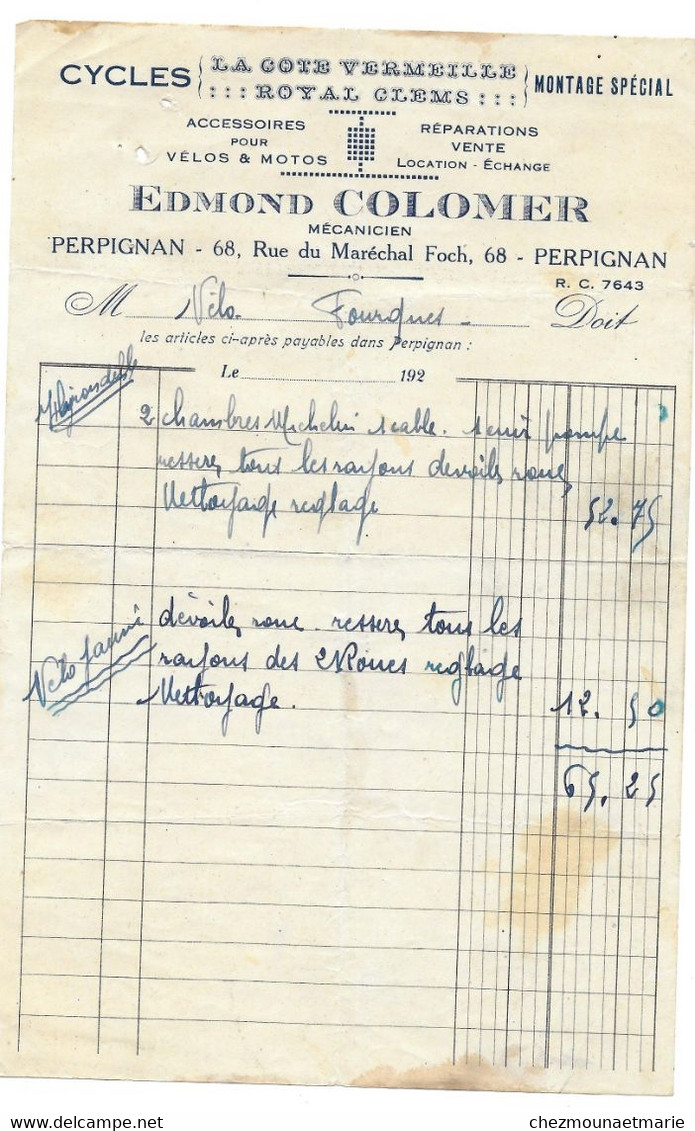 CYCLES LA COTE VERMEILLE MONTAGE SPÉCIAL
::: ROYAL CLEMS :::
ACCESSOIRES RÉPARATIONS
POUR VENTE
VÉLOS & MOTOS LOCATION - ÉCHANGE
EDMOND COLOMER
MÉCANICIEN
PERPIGNAN - 68, Rue du Maréchal Foch, 68 - PERPIGNAN
R. C. 7643
M Vélo Fourques - Doit
les articles ci-après payables dans Perpignan :
Le 192
Hirondelle
2 chambres Michelin 1 cable. 1 cuir pompe
resserer tous les rayons devoiler roue
Nettoyage reglage 52.75
Vélo
dévoiler roue - resserer tous les
rayons des 2 Roues reglage
Nettoyage. 12.50
65.25
chezmounaetmarie